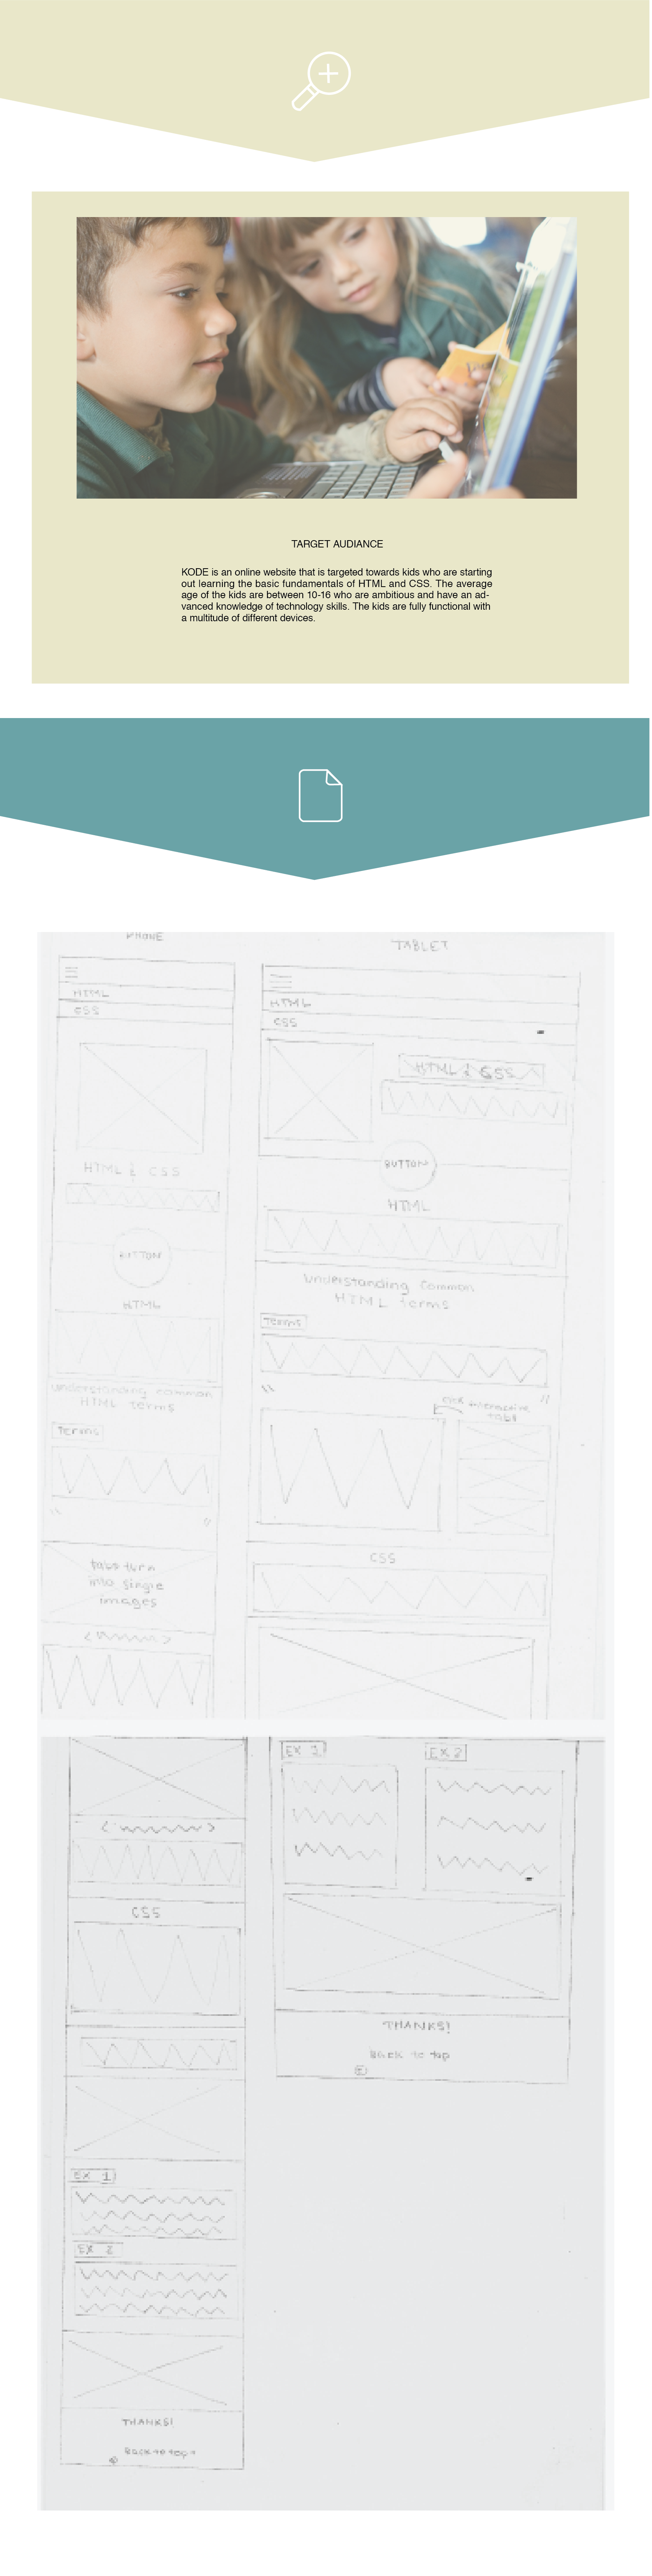 TARGET AUDIANCE
KODE is an online website that is targeted towards kids who are starting
out learning the basic fundamentals of HTML and CSS. The average
age of the kids are between 10-16 who are ambitious and have an ad-
vanced knowledge of technology skills. The kids are fully functional with
a multitude of different devices.
PHONE
HTML
CSS
HTML & CSS
BUTTON
HTML
Understanding common
HTML terms
Terms
tabs turn
into single
images
TABLET
HTML
CSS
HTML & CSS
BUTTON
HTML
Understanding Common
HTML terms
Terms
click interactive
tabs
CSS
CSS
EX 1
EX 2
THANKS!
Back to top
EX 1
EX 2
THANKS!
Back to top